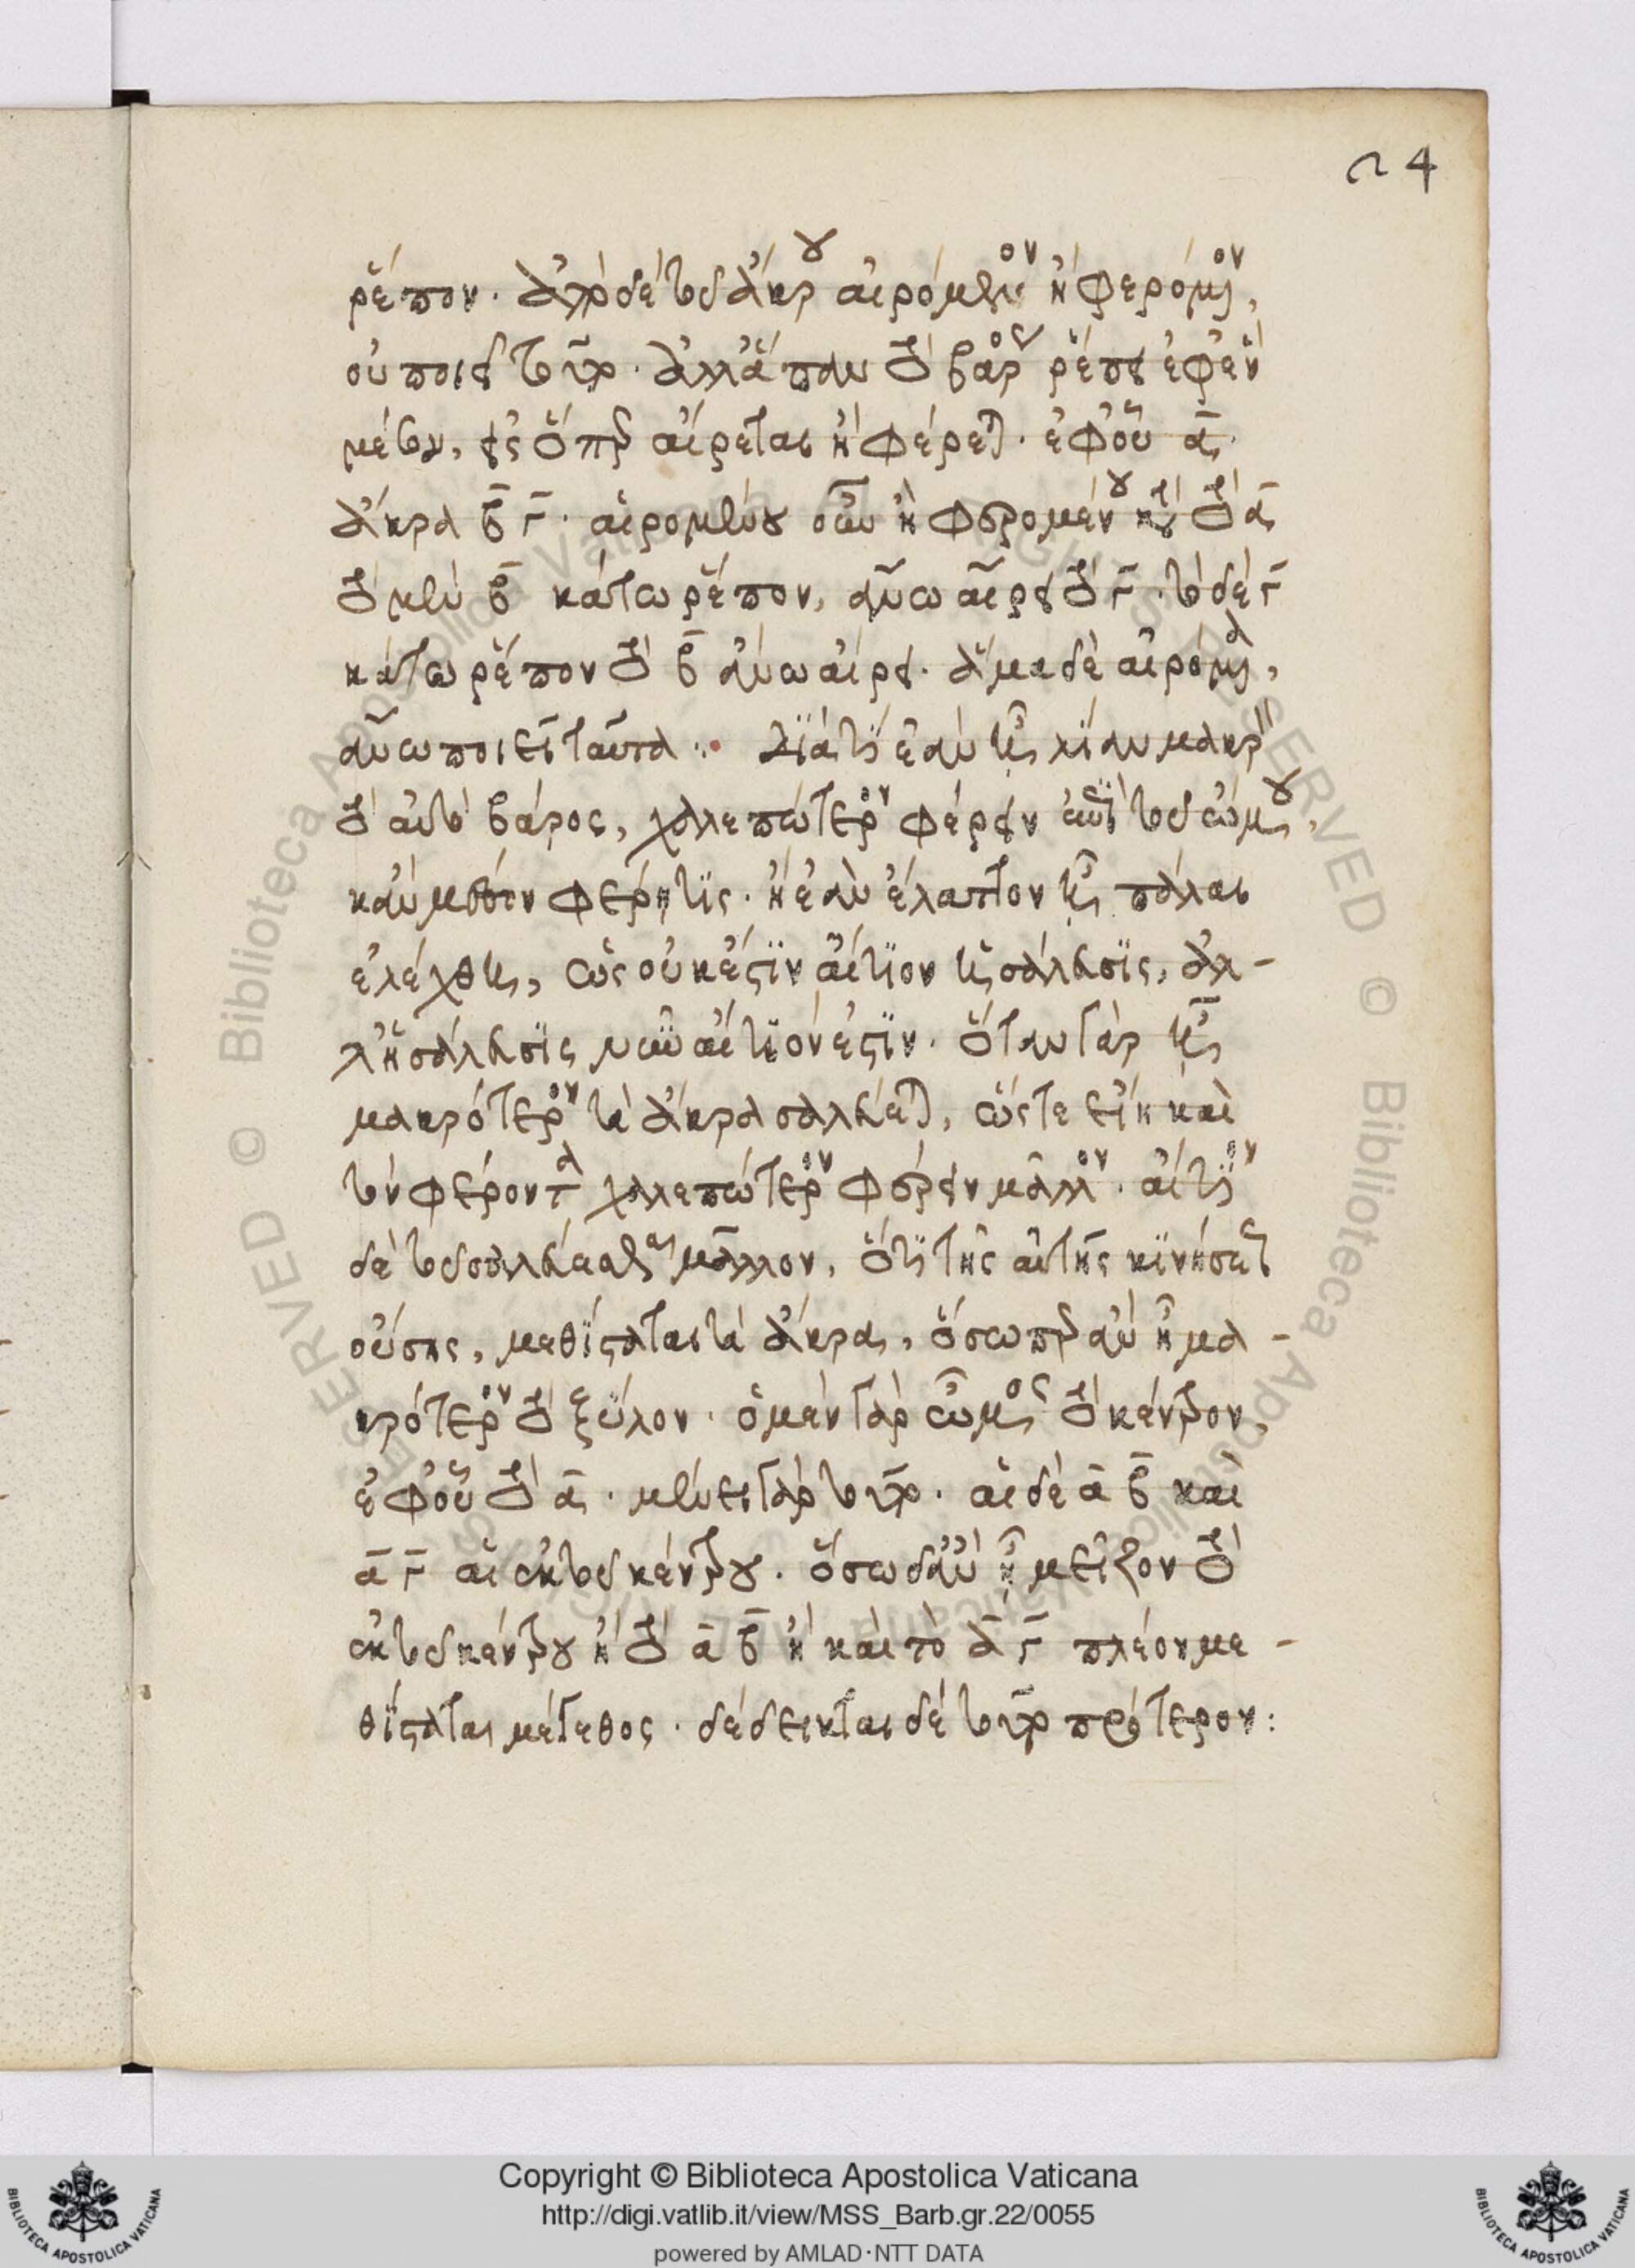 24
ῥέπον. ἀπὸ δὲ τοῦ ἄκρου αἰρόμενον ἢ φερόμενον,
οὐ ποιεῖ τοῦτο. ἀλλ' ἅπαν τὸ βάρος ῥέπει ἐφ' ἓν
μέσον, εἰς ὅπερ αἴρεται ἢ φέρεται. ἐφ' οὗ α̅.
ἄκρα β̅ γ̅. αἰρομένου οὖν ἢ φερομένου κατὰ τὸ α̅
τὸ μὲν β̅ κάτω ῥέπον, ἄνω αἴρει τὸ γ̅. τὸ δὲ γ̅
κάτω ῥέπον τὸ β̅ ἄνω αἴρει. ἅμα δὲ αἰρόμενα,
ἄνω ποιεῖ ταῦτα :· Διὰ τί ἐὰν ᾖ λίαν μακρὸν
τὸ αὐτὸ βάρος, χαλεπώτερον φέρειν ἐπὶ τοῦ ὤμου,
κἂν μέσον φέρῃ τις. ἢ ἐὰν ἔλαττον ᾖ πάλαι
ἐλέχθη, ὡς οὐκ ἔστιν αἴτιον ἡ σάλευσις, ἀλ-
λ' ἡ σάλευσις νῦν αἴτιόν ἐστιν. ὅταν γὰρ ᾖ
μακρότερον τὰ ἄκρα σαλεύεται, ὥστε εἴη καὶ
τὸν φέροντα χαλεπώτερον φέρειν μᾶλλον. αἴτιον
δὲ τοῦ σαλεύεσθαι μᾶλλον, ὅτι τῆς αὐτῆς κινήσεως
οὔσης, μεθίσταται τὰ ἄκρα, ὅσωπερ ἂν ᾖ μα-
κρότερον τὸ ξύλον. ὁ μὲν γὰρ ὦμος τὸ κέντρον,
ἐφ' οὗ τὸ α̅. μένει γὰρ τοῦτο. αἱ δὲ α̅ β̅ καὶ
α̅ γ̅ αἱ ἐκ τοῦ κέντρου. ὅσω δ' ἂν ᾖ μεῖζον τὸ
ἐκ τοῦ κέντρου ἢ τὸ α̅ β̅ ἢ καὶ τὸ α̅ γ̅ πλέον με-
θίσταται μέγεθος. δέδεικται δὲ τοῦτο πρότερον:
Copyright © Biblioteca Apostolica Vaticana
http://digi.vatlib.it/view/MSS_Barb.gr.22/0055
powered by AMLAD·NTT DATA